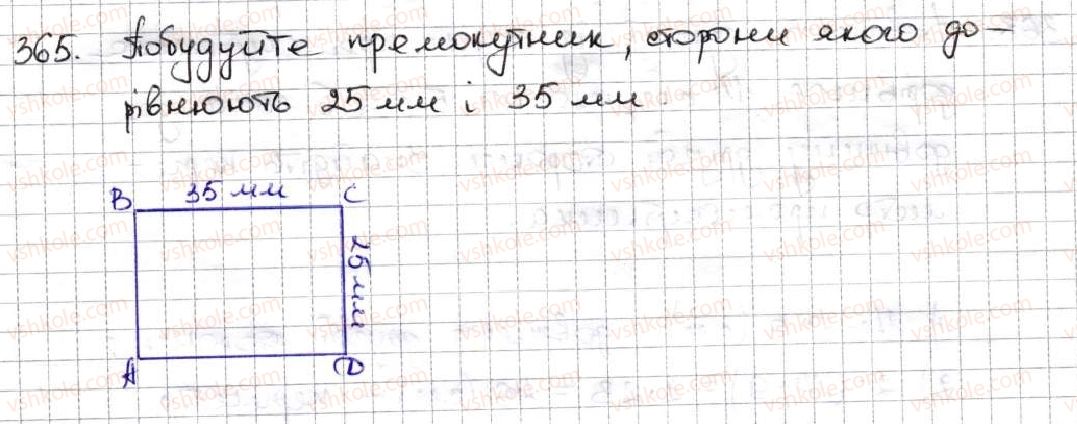 365. Побудуйте прямокутник, сторони якого до-
рівнюють 25 мм і 35 мм.
B 35 мм C
25 мм
A D
vshkole.com